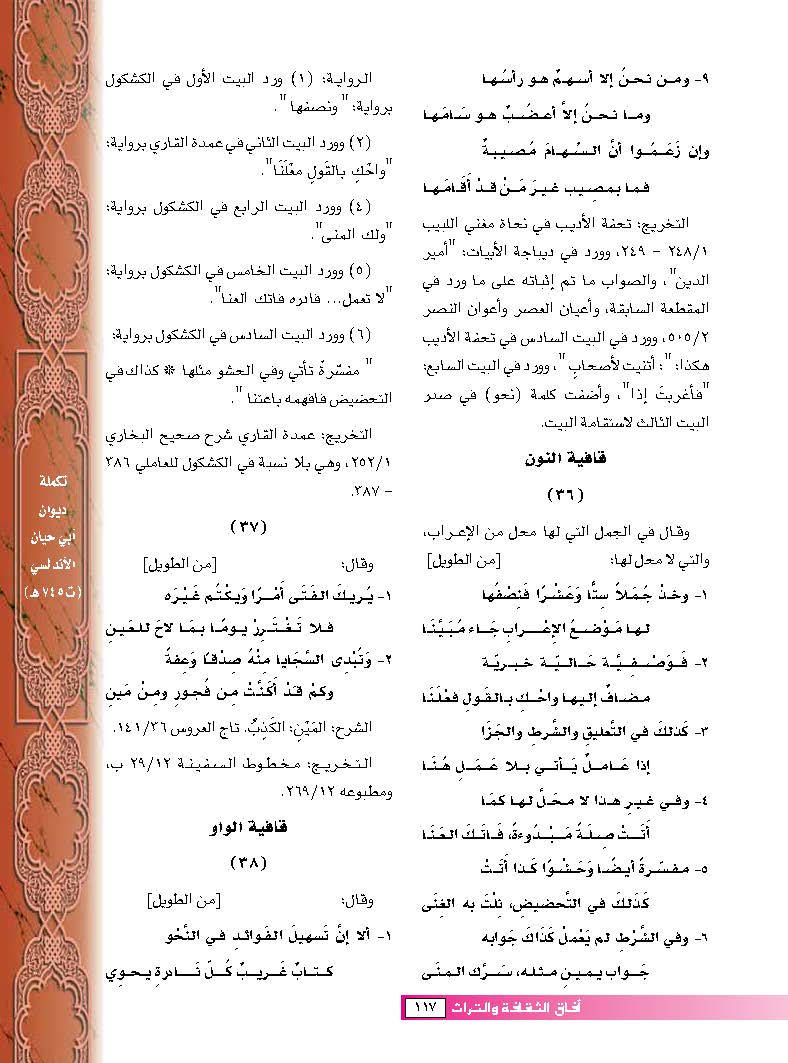 ٩- ومـن نـحـنُ إلا أسـهـمٌ هـو رأسُـهـا
ومـا نـحـنُ إلاَّ أعـضُـبٌ هـو سَـامَـهـا
وإن زَعَـمُـوا أنَّ السِّـهـامَ مُـصـيـبـةٌ
فـما بمصِـيـب غـيـرَ مَـنْ قـدْ أَقَـامَـهـا
التخريج: تحفة الأديب في نحاة مغني اللبيب
٢٤٨/١ - ٢٤٩، وورد في ديباجة الأبيات: "أمير
الدين"، والصواب ما تم إثباته على ما ورد في
المقطعة السابقة، وأعيان العصر وأعوان النصر
٥٠٥/٢، وورد في البيت السادس في تحفة الأديب
هكذا: "؛ أتنيت لأصحابٍ"، وورد في البيت السابع:
"فأغربتَ إذا"، وأضفت كلمة (نحو) في صدر
البيت الثالث لاستقامة البيت.
قافية النون
(٣٦)
وقـال في الجمل التي لها محل من الإعراب،
والتي لا محل لها: [من الطويل]
١- وخـذْ جُـمَـلاً سِتًّا وَعَـشْـرًا فَنِصْفُها
لـهـا مَـوْضـعُ الإعْـرابِ جَـاء مُـبَـيَّـنَـا
٢- فَـوَصْـفِـيَّـة حَـالـيَّـة خـبـريَّـة
مـضـافٌ إليـهـا واحْـكِ بـالـقَـولِ مـعْـلَـنَـا
٣- كَذلكَ في التَّعليقِ والشَّرطِ والجَزَا
إذا عَـامـلٌ يَـأتـي بـلا عَـمَـلٍ هُـنَـا
٤- وفـي غـيـرِ هـذا لا محَـلَّ لـهـا كمَـا
أَتَـتْ صِـلَـةً مَـبْـدُوءةً، فَـاتَـكَ العَـنَـا
٥- مـفـسّـرةً أيـضًـا وَحَـشْـوًا كَـذا أَتَـتْ
كَـذلكَ في التَّحضيضِ، نِلْتَ به الغِنَى
٦- وفي الشَّرْطِ لم يَعْملْ كَذَاكَ جَوابه
جَـواب يـمـيـنٍ مـثـلـه، سَـرَّك المـنَـى
الـروايـة: (١) ورد البيت الأول في الكشكول
برواية: "ونصفها".
(٢) وورد البيت الثاني في عمدة القاري برواية:
"واحْكِ بالقَولِ مقْلَنَا".
(٤) وورد البيت الرابع في الكشكول برواية:
"ولك المنى".
(٥) وورد البيت الخامس في الكشكول برواية:
"لا تعمل... فادره فاتك العنا".
(٦) وورد البيت السادس في الكشكول برواية:
"مفسّرةً تأتي وفي الحشو مثلها * كذاك في
التحضيض فافهمه باعتنا".
التخريج: عمدة القاري شرح صحيح البخاري
٢٥٢/١، وهي بلا نسبة في الكشكول للعاملي ٣٨٦
- ٣٨٧.
(٣٧)
وقال: [من الطويل]
١- يُـريـكَ الـفَـتَـى أَمْـرًا وَيـكْـتُـم غَـيْـرَه
فـلا تَـغْـتَـرِرْ يـومًـا بـمَـا لاحَ للـعَـينِ
٢- وَتُبْدِى السَّجَايا مِنْهُ صِدْقًا وَعِفةً
وكمْ قدْ أَكَنَّتْ مِن فُجورٍ ومِنْ مَينِ
الشرح: المَيْنِ: الكَذِبُ. تاج العروس ١٤١/٣٦.
التخريج: مخطوط السفينة ٢٩/١٢ ب،
ومطبوعه ٢٦٩/١٢.
قافية الواو
(٣٨)
وقال: [من الطويل]
١- ألا إنَّ تَسهيلَ الـفَـوائـدِ في النَّحْو
كـتـابٌ غَـريـبٌ كُـلَّ نَـادرةٍ يـحـوي
تكملة
ديوان
أبي حيان
الأندلسي
(ت٧٤٥هـ)
آفاق الثقافة والتراث ١١٧